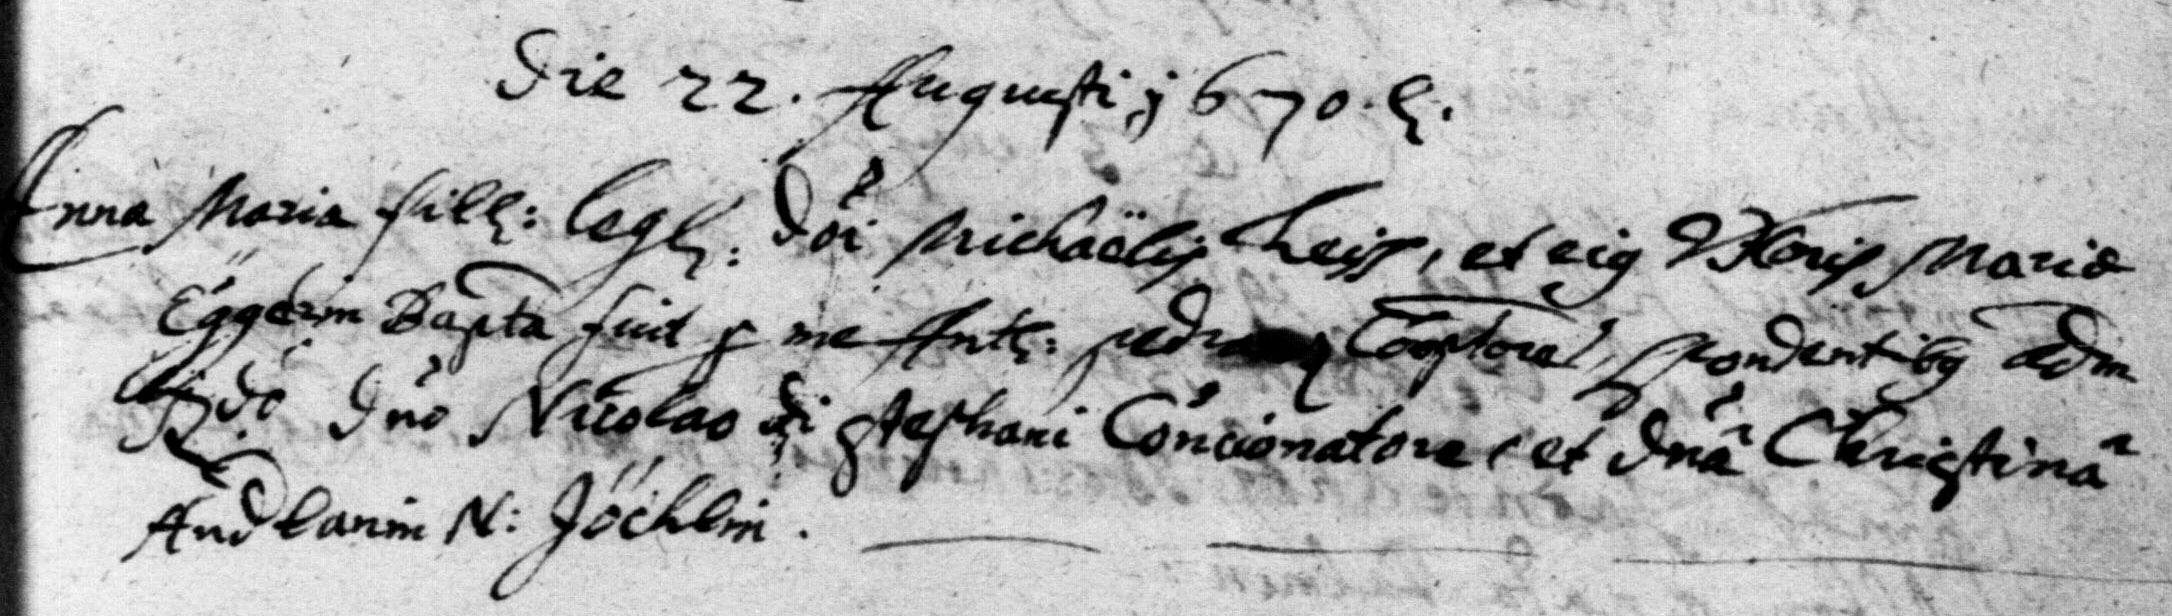 Die 22. Augusti j670.
Anna Maria fill: legl: Dni Michaëlis Theiss, et eig Vxoris Mariæ
Eggerin Bapta fuit p me Anto: Cooptore, spondentibg Adm
Rdo Dno Nicolao di Stephani Concionatore, et Dna Christina
Andlanin N: Jöchlin.